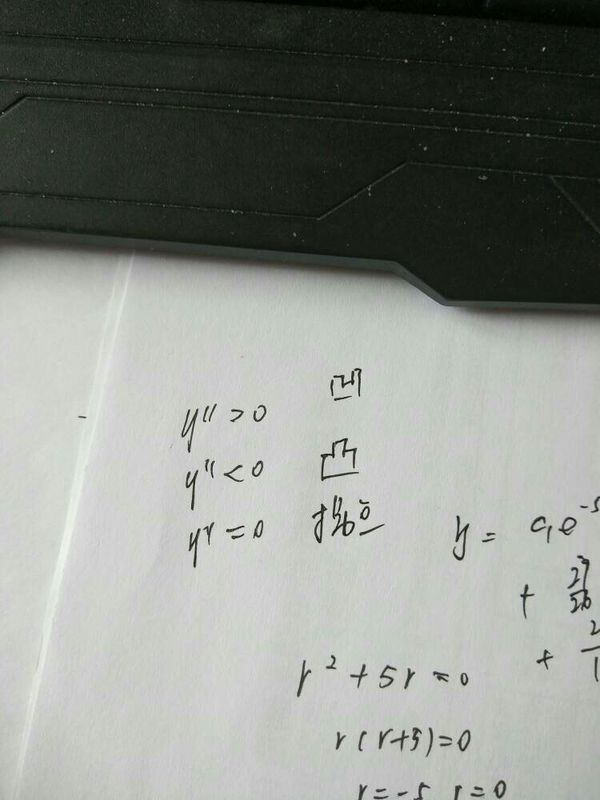 y''>0 凹
y''<0 凸
y''=0 拐点
y = c₁e⁻⁵
+
+
r²+5r=0
r(r+5)=0
r=-5 r=0